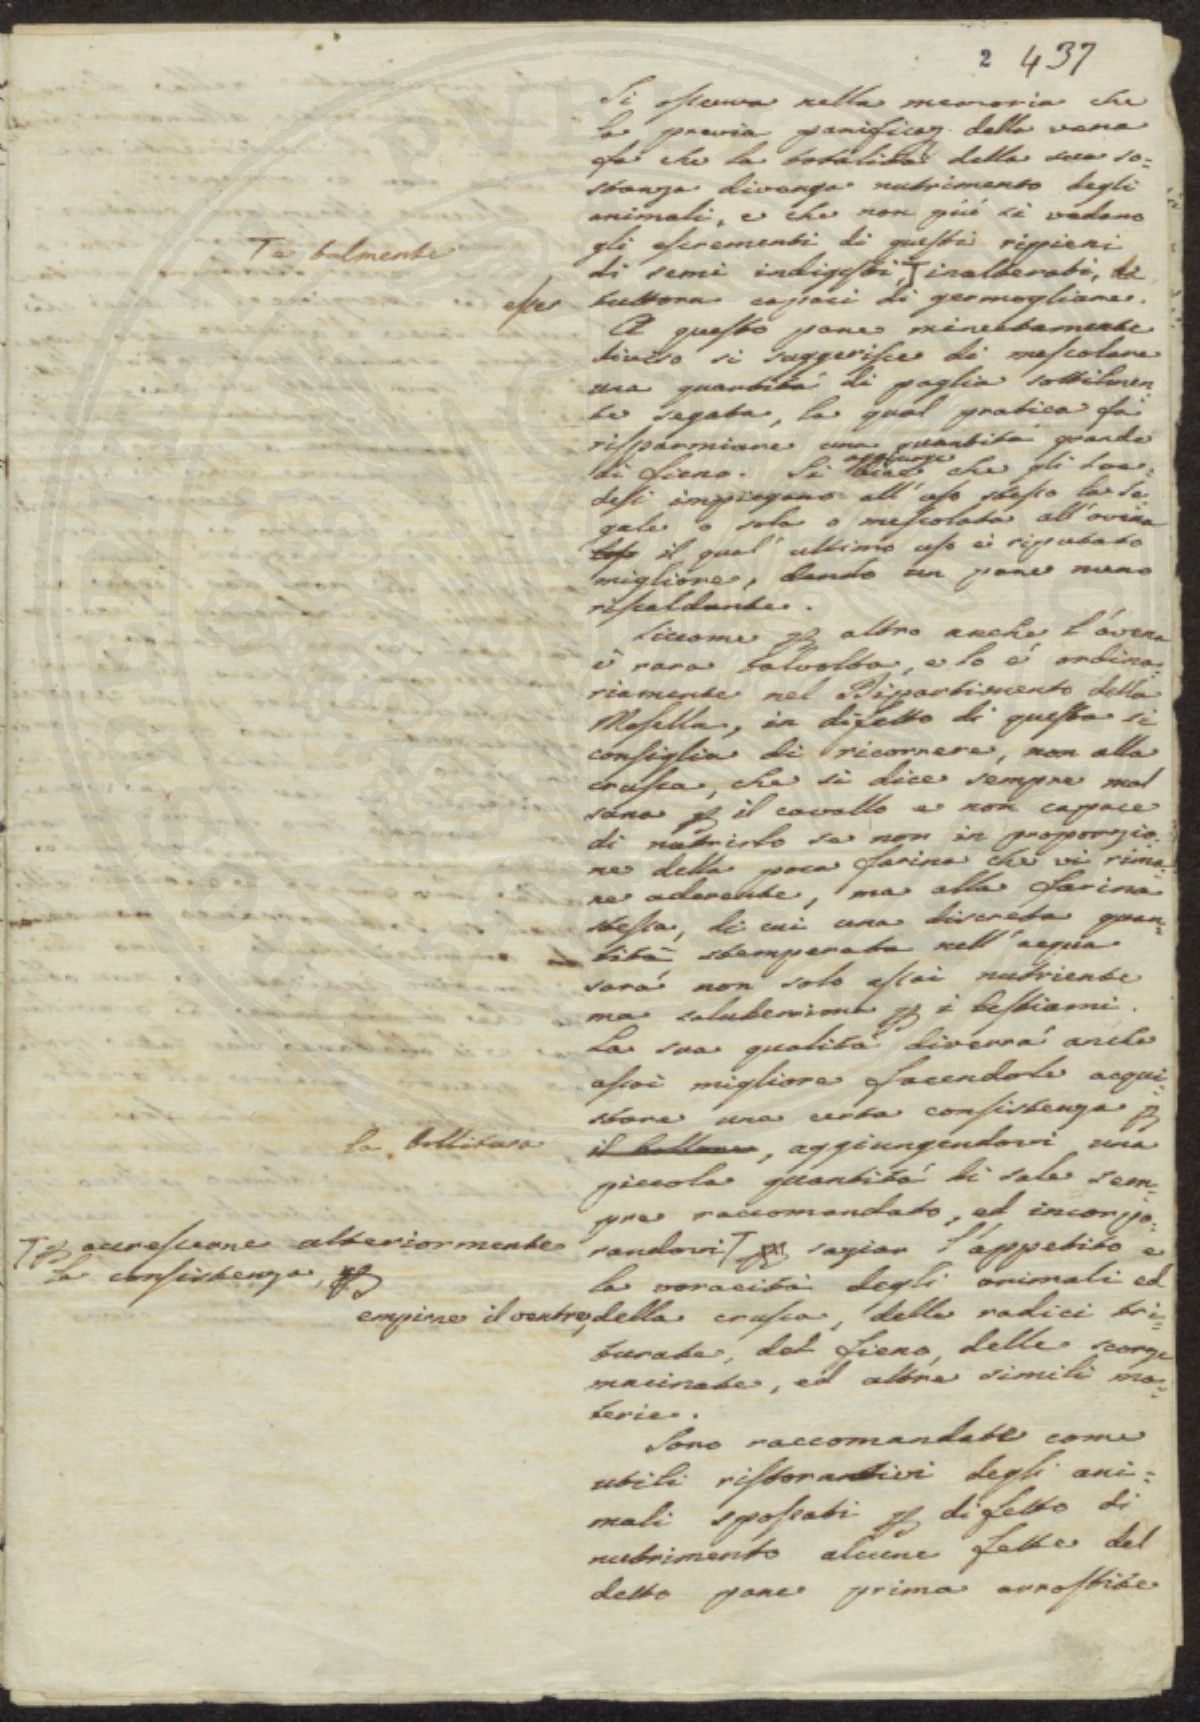 2 437
Si osserva nella memoria che
la previa panificaz. della vena
fa che la totalità della sua so=
stanza divenga nutrimento degli
animali, e che non più si vedano
gli escrementi di questi ripieni
Te talmente
di semi indigesti, T inalterati, da
esser
tuttora capaci di germogliare.
A questo pane minutamente
diviso si suggerisce di mescolare
una quantità di paglia sottilmen
te segata, la qual pratica fa
risparmiare una quantità grande
aggiunge
di fieno. Si dice che gli Sve=
desi impiegano all' uso stesso la se
gale o sola o mescolata all' avena
il qual' ultimo uso è riputato
migliore, dando un pane meno
riscaldante.
Siccome per altro anche l'avena
è rara talvolta, e lo è ordina
riamente nel Dipartimento della
Mosella, in difetto di questa si
consiglia di ricorrere, non alla
crusca, che si dice sempre mal
sana per il cavallo e non capace
di nutrirlo se non in proporzio
ne della poca farina che vi rima
ne aderente, ma alla farina
stessa, di cui una discreta quan=
tità stemperata nell' acqua
sarà non solo assai nutriente
ma saluberrima per i bestiami.
La sua qualità diverrà anche
assai migliore facendole acqui=
stare una certa consistenza per
la bollitura
il bollore, aggiungendovi una
piccola quantità di sale sem=
pre raccomandato, ed incorpo=
T per accrescerne ulteriormente
randovi T per saziar l'appetito e
la consistenza, per
la voracità degli animali ed
empirne il ventre,
della crusca, delle radici tri=
turate, del fieno, delle scorze
macinate, ed altre simili ma=
terie.
Sono raccomandate come
utili ristorantivi degli ani=
mali spossati per difetto di
nutrimento alcune fette del
detto pane prima arrostite